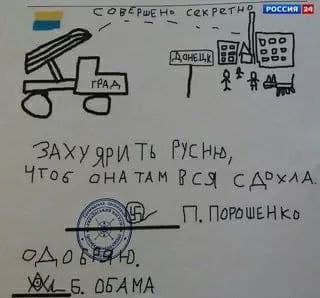 СОВЕРШЕНО СЕКРЕТНО
РОССИЯ 24
ДОНЕЦК
ГРАД
ЗАХУЯРИТЬ РУСНЮ,
ЧТОБ ОНА ТАМ ВСЯ СДОХЛА.
П. ПОРОШЕНКО
ОДОБРЯЮ.
Б. ОБАМА